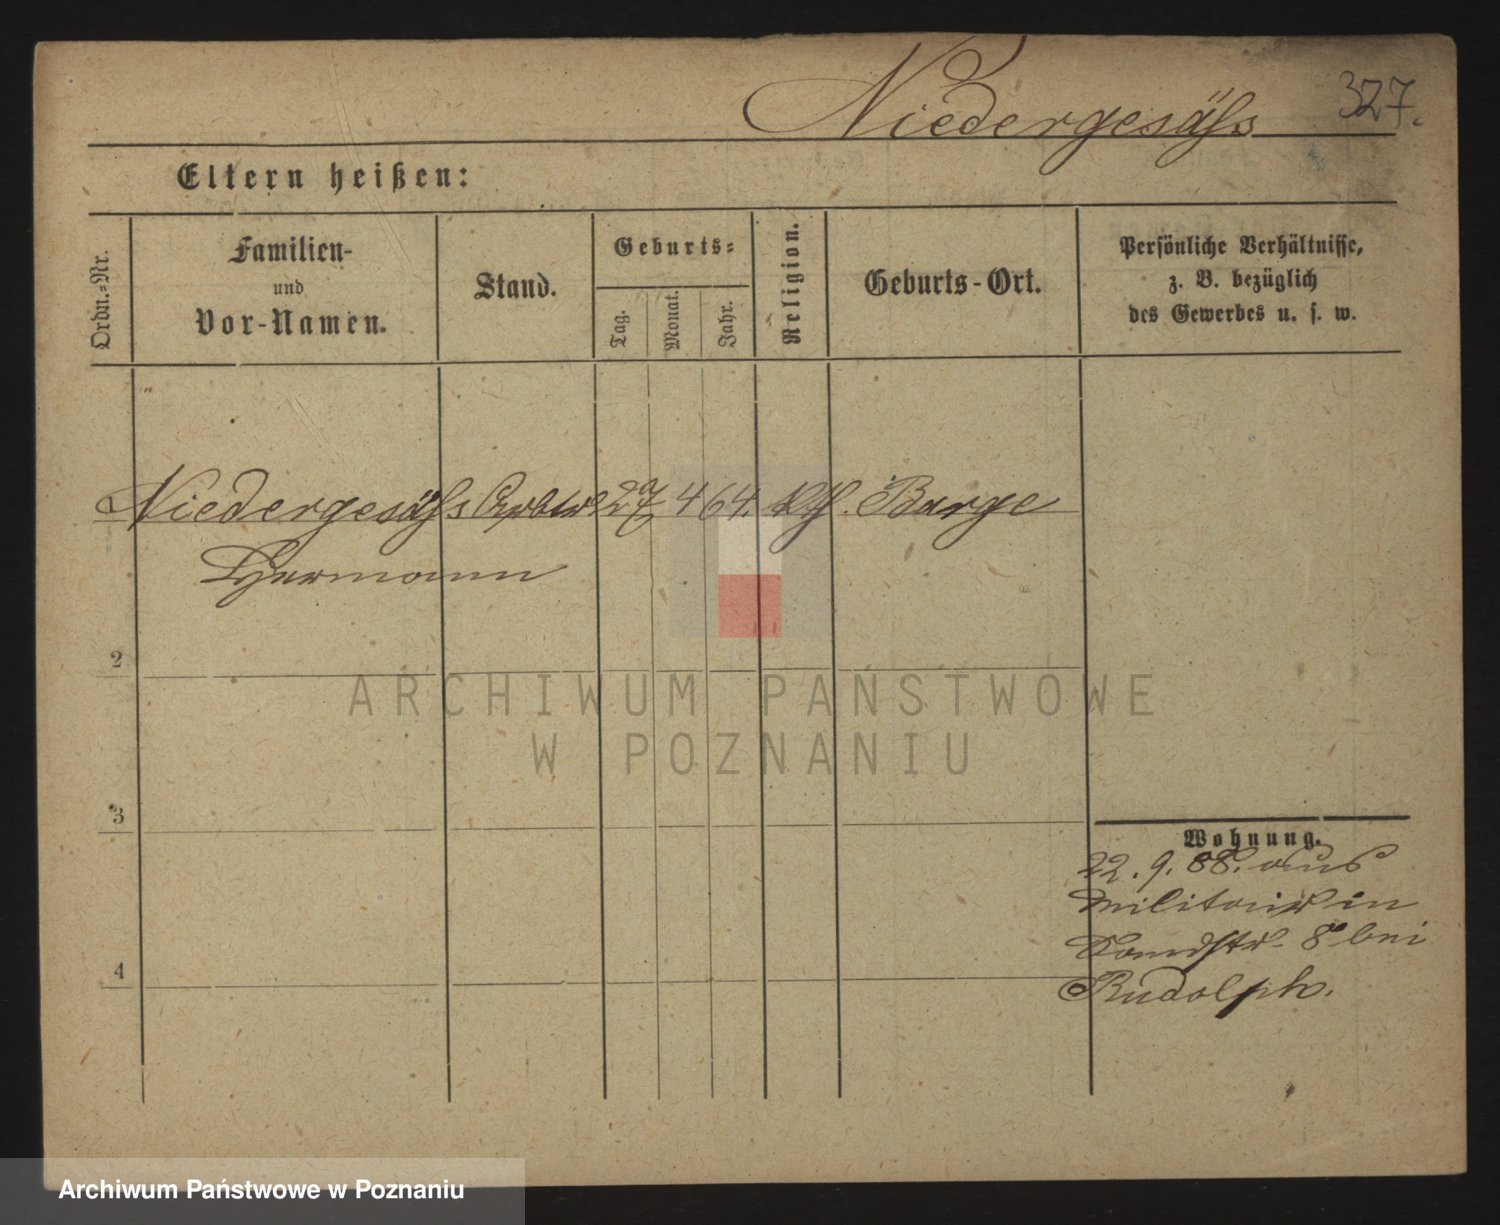 327.
Niedergesäß
Eltern heißen:
Ordn.-Nr.
Familien-
und
Vor-Namen.
Stand.
Geburts-
Tag.
Monat.
Jahr.
Religion.
Geburts-Ort.
Persönliche Verhältnisse,
z. B. bezüglich
des Gewerbes u. s. w.
Niedergesäß 27 4 64. Barge
Hermann
2
3
4
Wohnung.
22. 9. 88. aus
Militair in
Sandstr. 8 bei
Rudolph.
ARCHIWUM PAŃSTWOWE
W POZNANIU
Archiwum Państwowe w Poznaniu